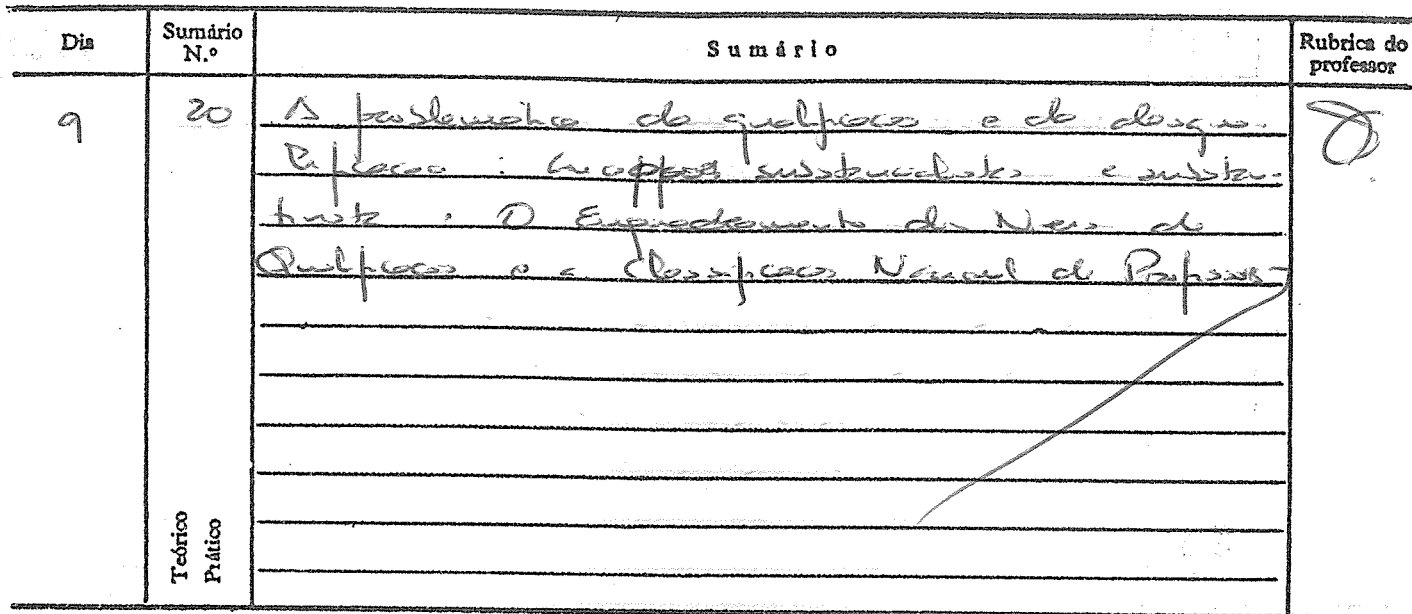 Dia
Sumário N.º
Sumário
Rubrica do professor
9
20
A problemática da qualificação e da desqua-
lificação : substancialista e
. O Enquadramento dos Níveis de
Qualificação e a Classificação Nacional de Profissões
Teórico
Prático